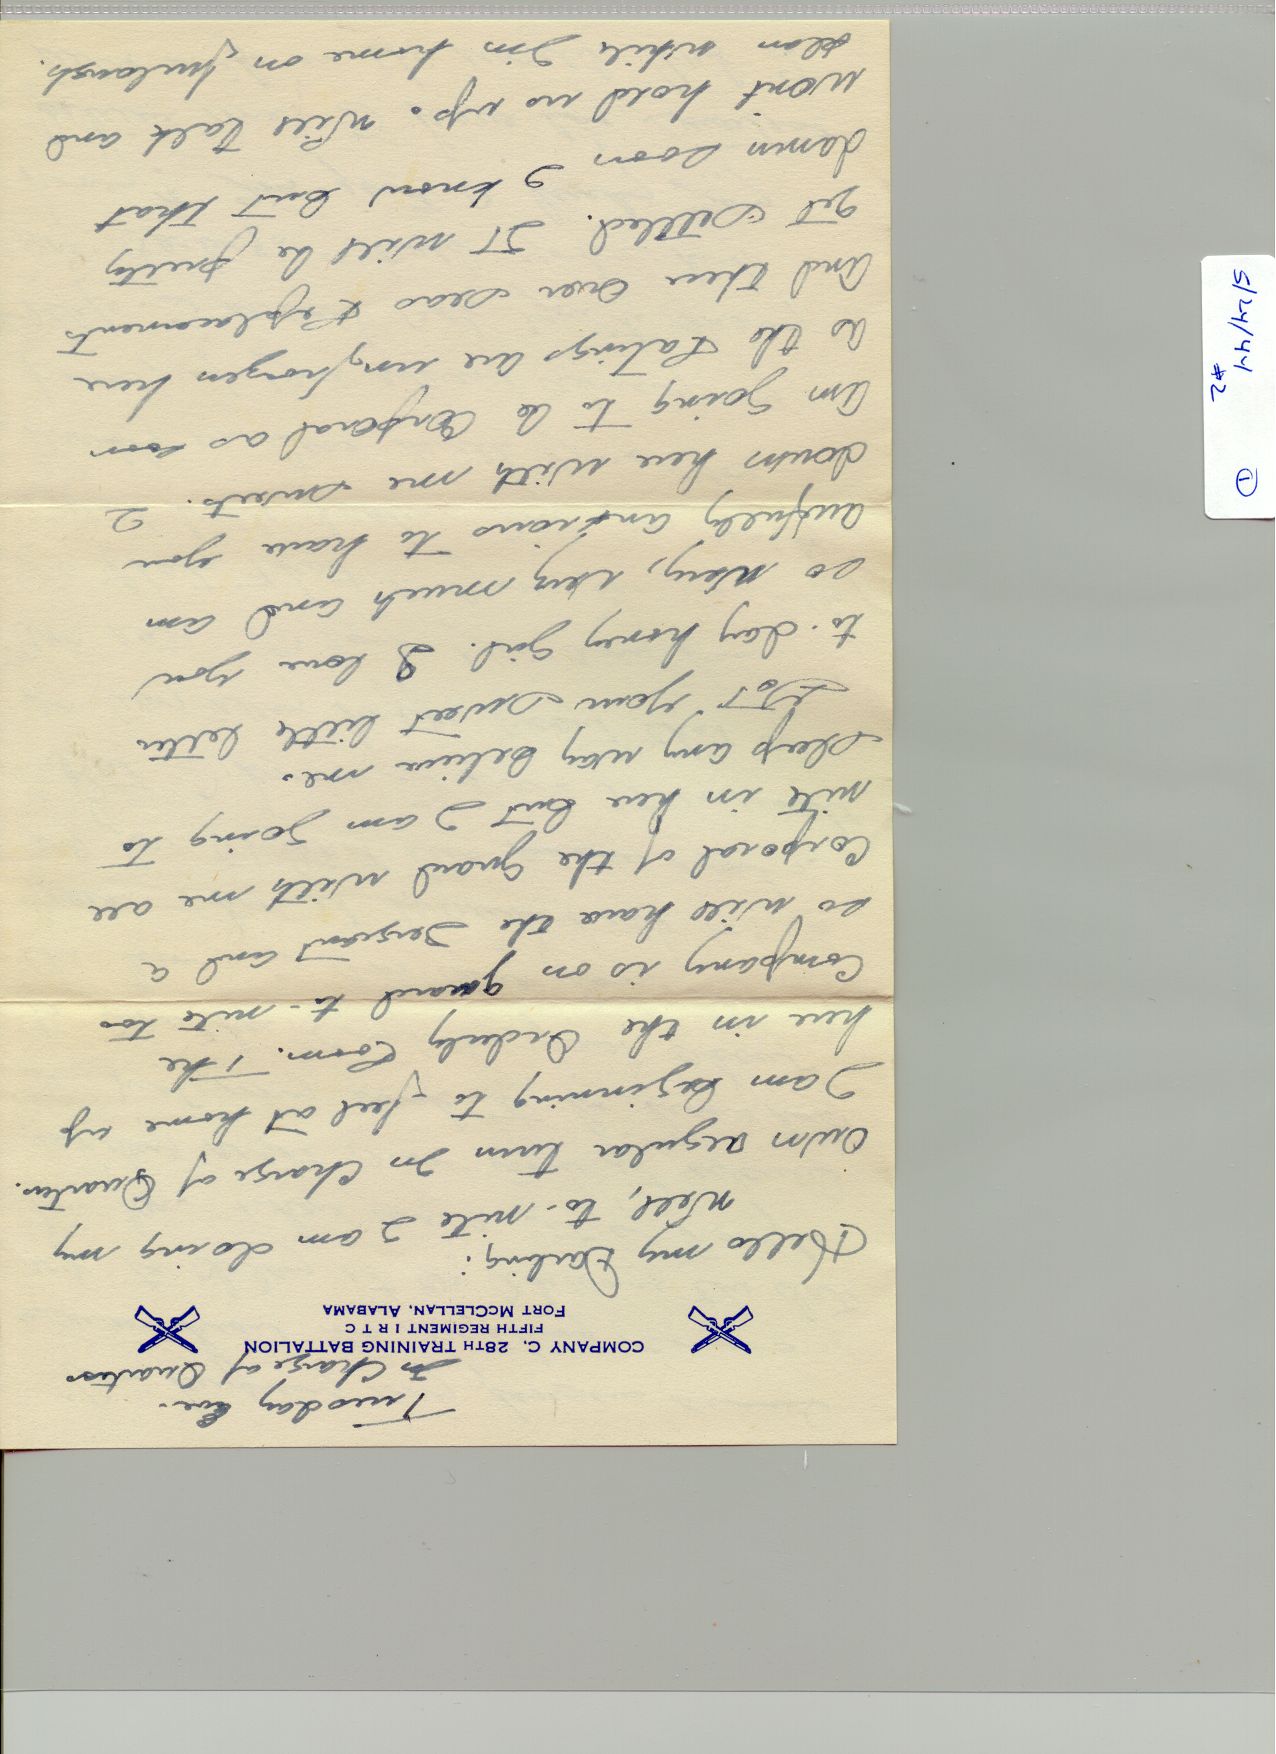 Tuesday Eve.
In Charge of Quarters.
COMPANY C, 28TH TRAINING BATTALION
FIFTH REGIMENT I R T C
FORT MCCLELLAN, ALABAMA
Hello my Darling;
Well, to-nite I am doing my
own regular turn In Charge of Quarters.
I am beginning to feel at home up
here in the Orderly Room. The
Company is on guard to-nite too
so will have the Sergeant and a
Corporal of the Guard with me all
nite in here but I am going to
sleep any way believe me.
Got your sweet little letter
to-day honey girl. I love you
so very, very much and am
awfully anxious to have you
down here with me sweets. I
am going to be Corporal as soon
as the ratings are unfrozen here
and these over seas replacements
get settled. It will be pretty
damn soon I know but that
won't hold us up. Will talk and
plan while I'm home on furlough.
5/24/44
#2
1